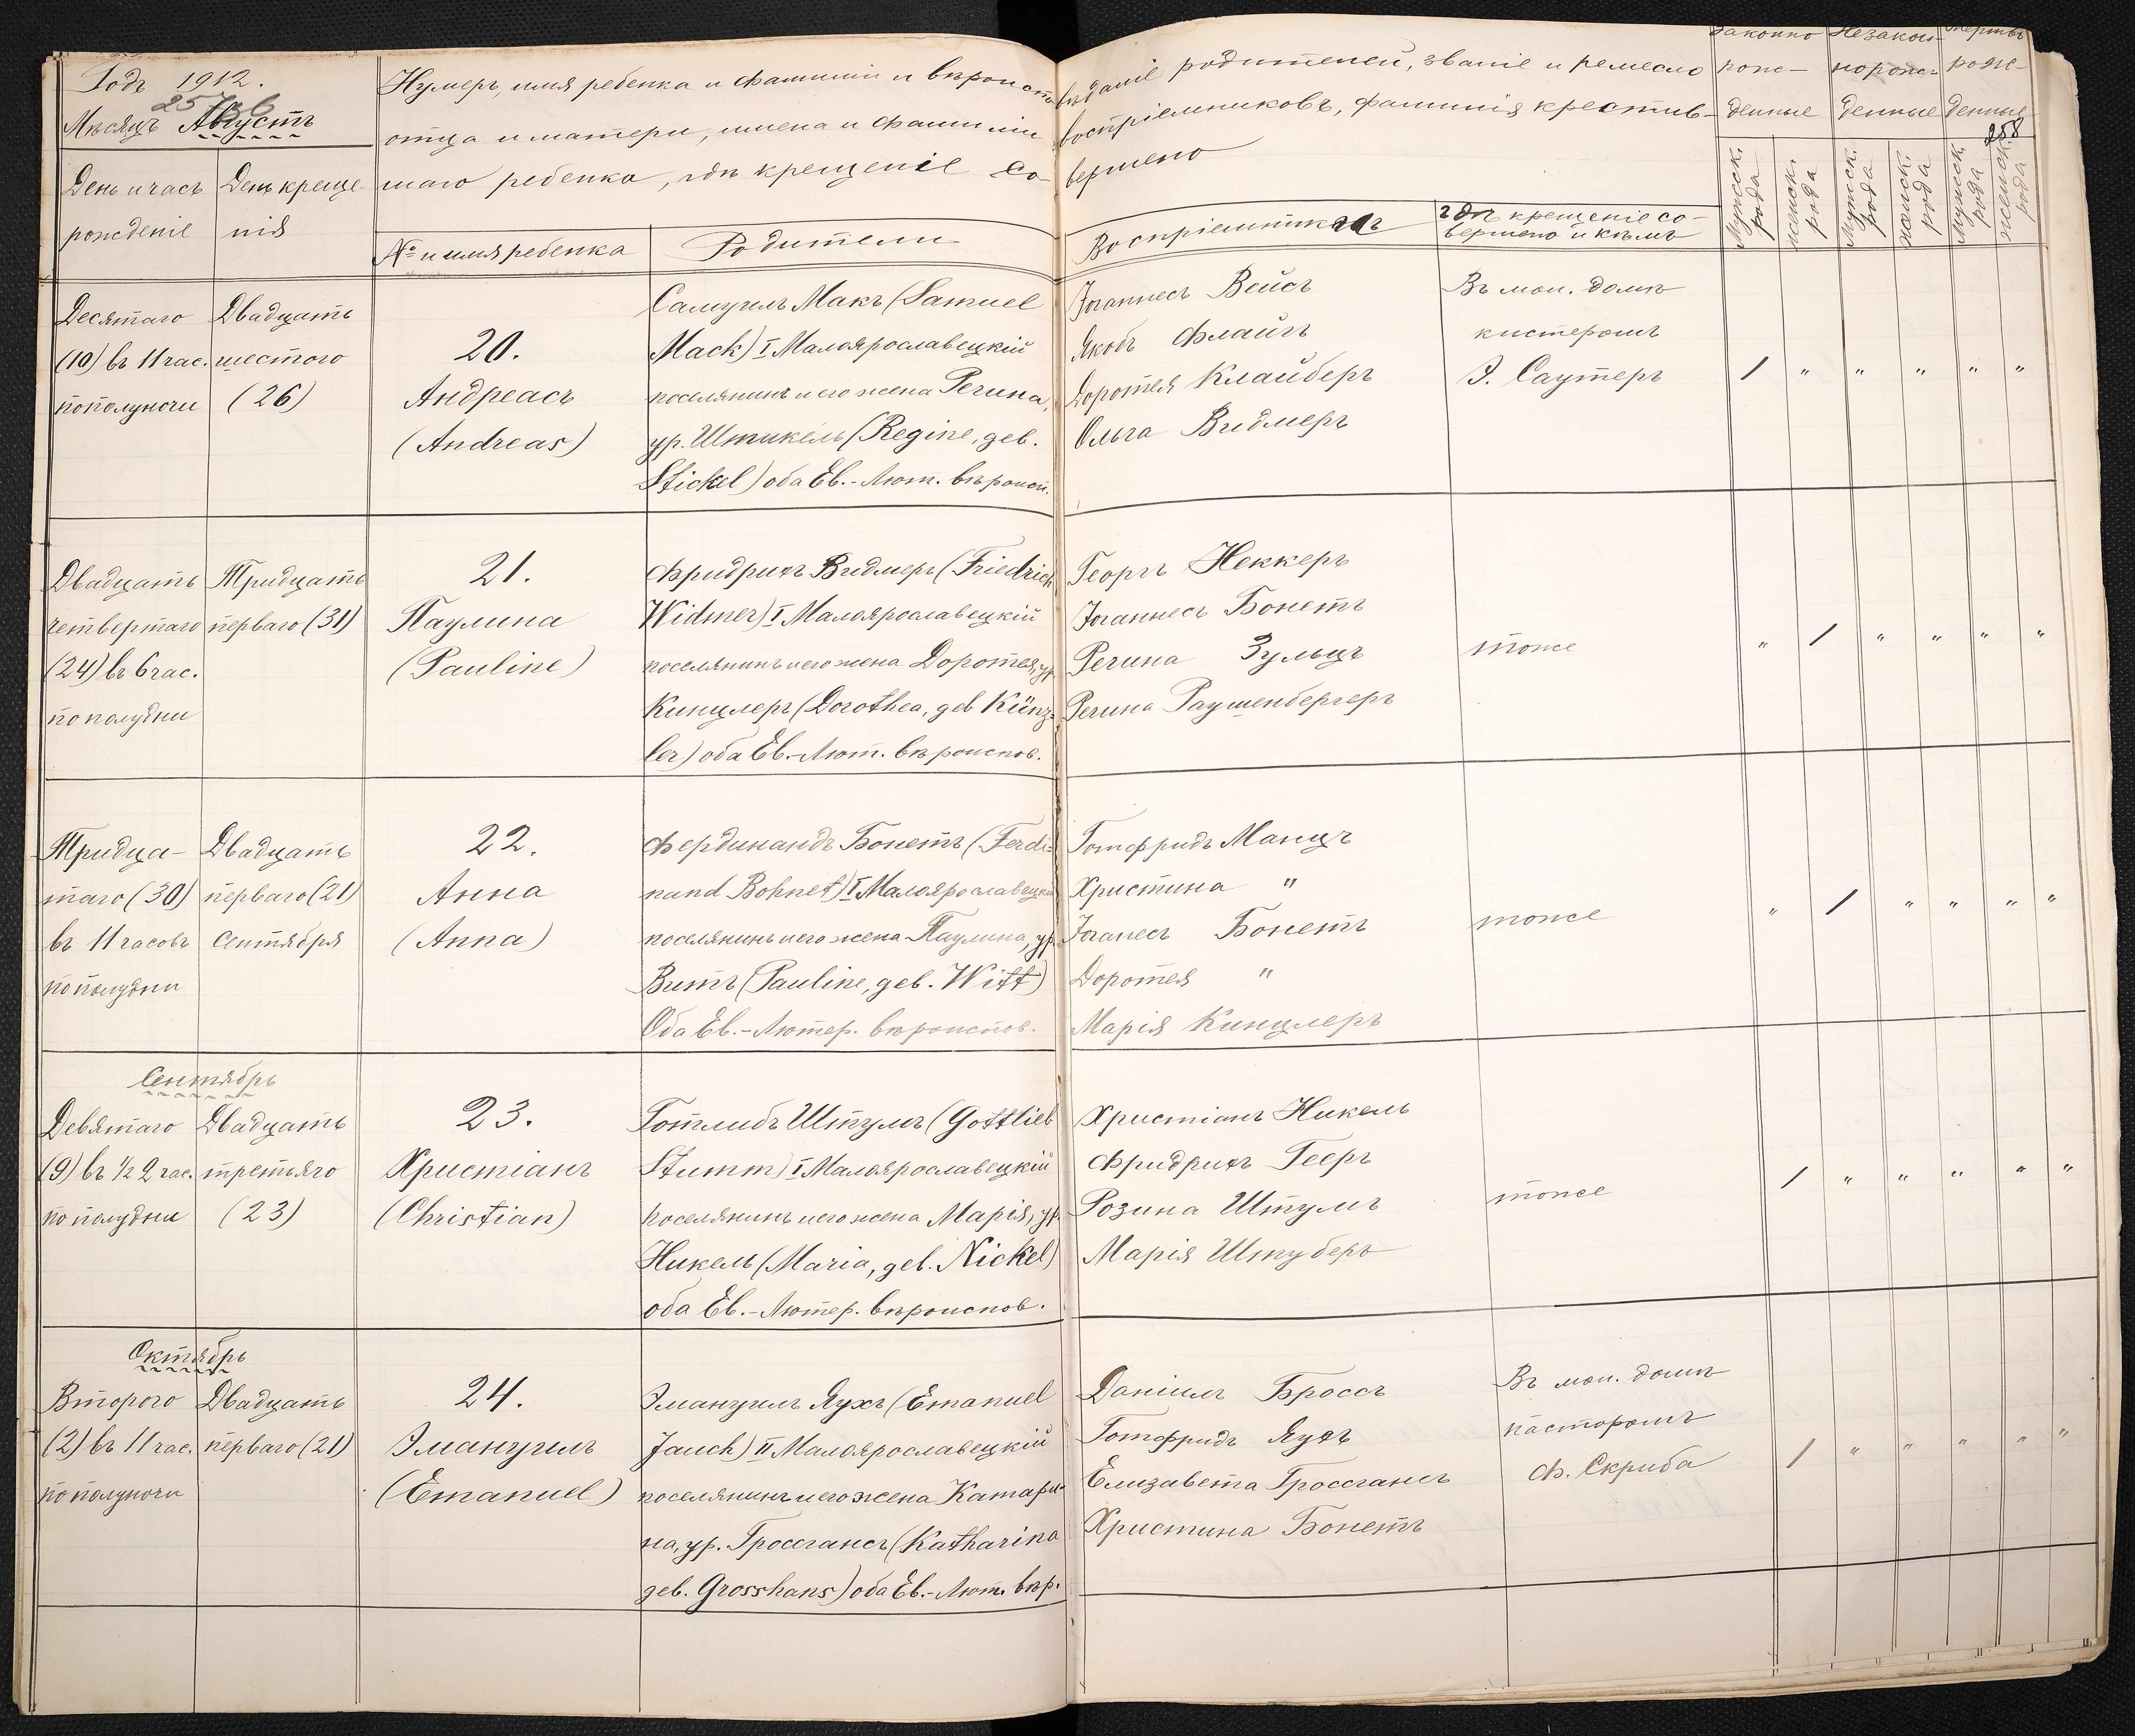 Годъ 1912.
257 об
Мѣсяцъ Августъ
День и часъ рожденіе
День крещенія
Нумеръ, имя ребенка и фамиліи и вѣроисповѣданіе родителей, званіе и ремесло
отца и матери, имена и фамиліи воспріемниковъ, фамилія крестив-
шаго ребенка, гдѣ крещеніе совершено
№ и имя ребенка
Родители
Воспріемники
гдѣ крещеніе со-
вершено и кѣмъ
Законно рожденные
Незаконнорожденные
Мертворожденные
258
Мужск. рода
женск. рода
Мужск. рода
женск. рода
Мужск. рода
женск. рода
Десятаго
(10) въ 11 час.
пополуночи
Двадцать
шестого
(26)
20.
Андреасъ
(Andreas)
Самуилъ Макъ (Samuel
Mack) I Малоярославецкій
поселянинъ и его жена Регина,
ур. Штикель (Regine, geb.
Stickel) оба Ев.-Лют. вѣроисп.
Іоганнесъ Вейсъ
Якобъ Флайгъ
Доротея Клайберъ
Ольга Видмеръ
Въ мол. домѣ
кистеромъ
Э. Саутеръ
1 " " " " "
Двадцать
четвертаго
(24) въ 6 час.
пополудни
Тридцать
перваго (31)
21.
Паулина
(Pauline)
Фридрихъ Видмеръ (Friedrich
Widmer) I Малоярославецкій
поселянинъ и его жена Доротея, ур.
Кинцлеръ (Dorothea, geb Künz-
ler) оба Ев.-Лют. вѣроиспов.
Георгъ Неккеръ
Іоганнесъ Бонетъ
Регина Зульцъ
Регина Раушенбергеръ
тоже
" 1 " " " "
Тридца-
таго (30)
въ 11 часовъ
пополудни
Двадцать
перваго (21)
Сентября
22.
Анна
(Anna)
Фердинандъ Бонетъ (Ferdi-
nand Bohnet) I Малоярославецкій
поселянинъ и его жена Паулина, ур.
Витъ (Pauline, geb. Witt)
Оба Ев.-Лютер. вѣроиспов.
Готфридъ Манцъ
Христина "
Іоганесъ Бонетъ
Доротея "
Марія Кинцлеръ
тоже
" 1 " " " "
Сентябрь
Девятаго
(9) въ ½ 2 час.
пополудни
Двадцать
третьяго
(23)
23.
Христіанъ
(Christian)
Готлибъ Штумъ (Gottlieb
Stumm) I Малоярославецкій
поселянинъ и его жена Марія, ур.
Никель (Maria, geb. Nickel)
оба Ев.-Лютер. вѣроиспов.
Христіанъ Никель
Фридрихъ Гееръ
Розина Штумъ
Марія Штуберъ
тоже
1 " " " " "
Октябрь
Второго
(2) въ 11 час.
пополуночи
Двадцать
перваго (21)
24.
Эмануилъ
(Emanuel)
Эмануилъ Яухъ (Emanuel
Jauch) II Малоярославецкій
поселянинъ и его жена Катари-
на, ур. Гроссгансъ (Katharina
geb. Grosshans) оба Ев.-Лют. вѣр.
Даніилъ Броссъ
Готфридъ Яухъ
Елизавета Гроссгансъ
Христина Бонетъ
Въ мол. домѣ
пасторомъ
Ф. Скриба
1 " " " " "